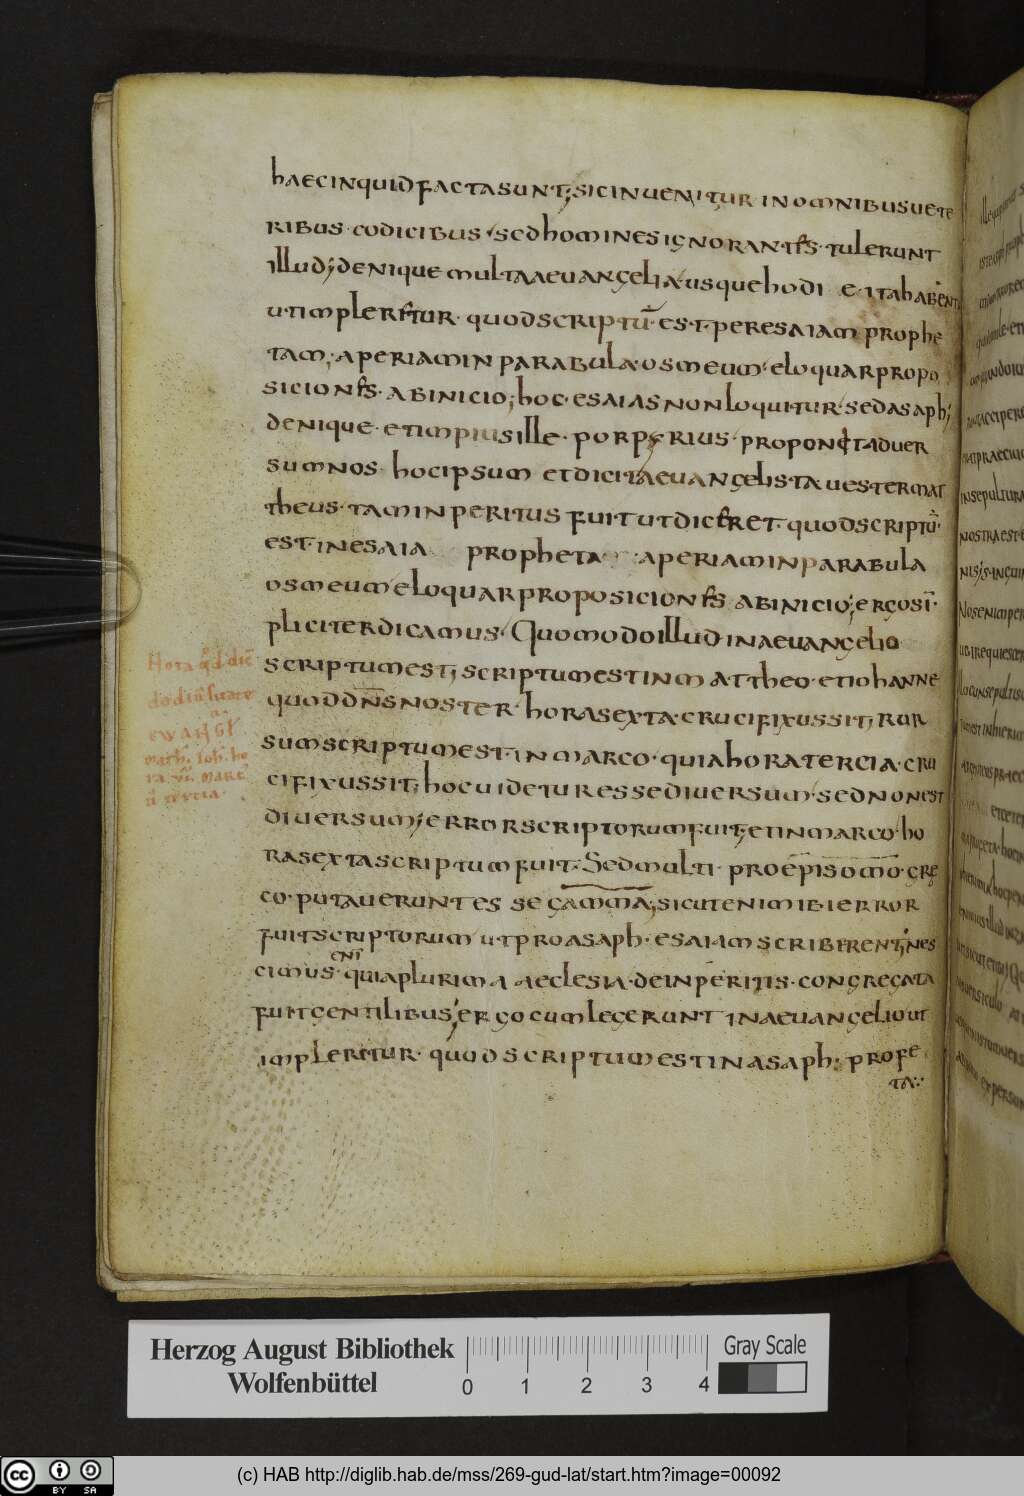 haec inquid facta sunt; sic inuenitur in omnibus uete
ribus codicibus sed homines ignorantes tulerunt
illud; denique multa aeuangelia usque hodi e ita habent
ut impleretur quod scriptū est per esaiam prophe
tam; aperiam in parabula os meum eloquar propo
siciones ab inicio; hoc esaias non loquitur sed asaph;
denique et impius ille porperius proponet aduer
sum nos hoc ipsum et dicit aeuangelista uester mat
theus tam inperitus fuit ut diceret quod scriptū
est in esaia propheta aperiam in parabula
os meum eloquar proposiciones ab inicio; ergo si
pliciter dicamus Quomodo illud in aeuangelio
scriptum est; scriptum est in mattheo et iohanne
quod dns noster hora sexta crucifixus sit; rur
sum scriptum est in marco quia hora tercia cru
cifixus sit; hoc uidetur esse diuersum sed non est
diuersum; error scriptorum fuit; et in marco ho
ra sexta scriptum fuit Sed multi pro episomo gre
co putauerunt esse gamma; sicut enim ibi error
fuit scriptorum ut pro asaph esaiam scriberent; nes
cimus enī quia plurima aeclesia de inperitis congregata
fuit gentilibus; ergo cum legerunt in aeuangelio ut
impleretur quod scriptum est in asaph profe
ta
Herzog August Bibliothek
Wolfenbüttel
0 1 2 3 4
Gray Scale
cc BY SA
(c) HAB http://diglib.hab.de/mss/269-gud-lat/start.htm?image=00092